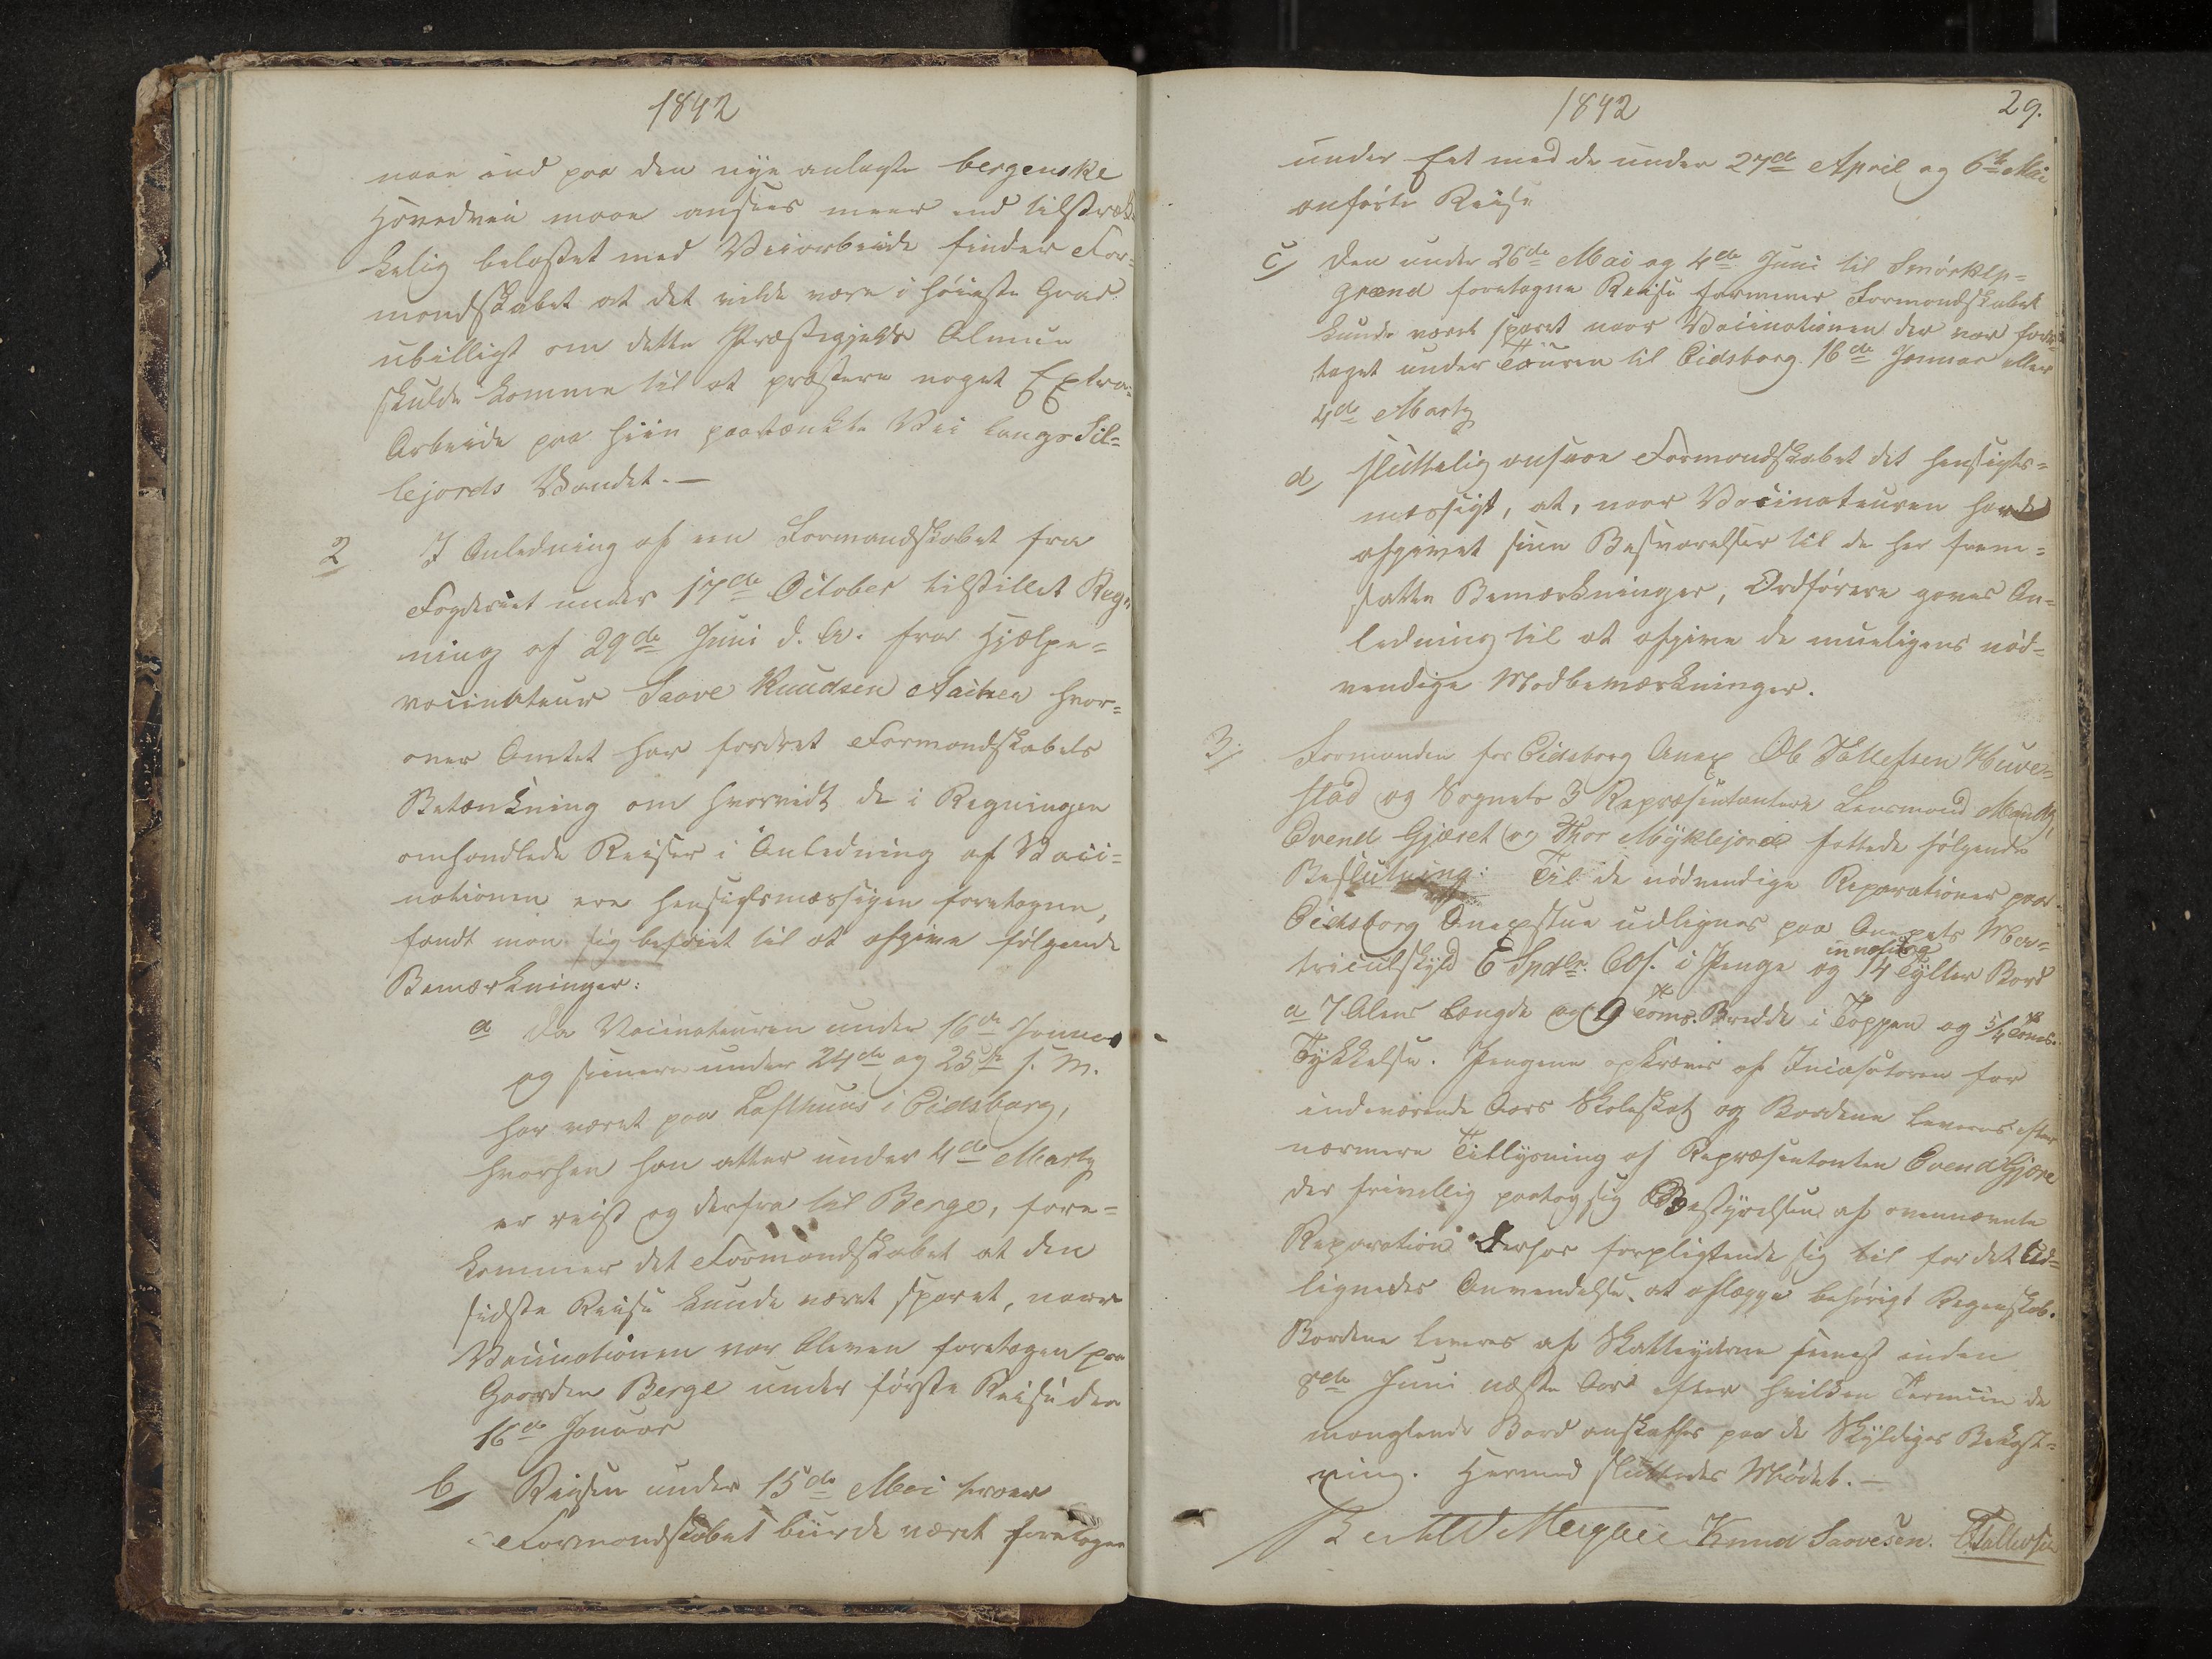 1842
naae ind paa den nye anlagte bergenske
Hovedvei maae ansees meer end tilstræk¬
kelig belastet med Veiarbeide finder For¬
mandskabet at det vilde være i høieste Grad
ubilligt om dette Præstegjelds Almue
skulde komme til at præstere noget Extra¬
Arbeide paa hiin paatænkte Vei langs Sil¬
lejords Vandet.—
2 I Anledning af en Formandskabet fra
Fogderiet under 17de October tilstillet Reg¬
ning af 29de Juni d. A. fra Hjælpe¬
vaccinateur Saave Knudsen hvor¬
over Amtet har fordret Formandskabets
Betænkning om hvorvidt de i Regningen
omhandlede Reiser i Anledning af Vacci¬
nationen ere hensigtsmæssigen foretagne,
fandt man sig beføiet til at afgive følgende
Bemærkninger:
a Da Vaccinateuren under 16de Januar
og senere under 24de og 25de s. M.
har været paa Lofthuus i Eidsborg,
hvorhen han atter under 4de Marty
er reist og derfra til Berge, fore¬
kommer det Formandskabet at den
sidste Reise kunde været sparet, naar
Vaccinationen var bleven foretagen paa
Gaarden Berge under første Reise den
16de Januar
b Reisen under 15de Mai troer
Formandskabet burde været foretagen
1842 29.
under Eet med de under 27de April og 6te Mai
anførte Reise
c Den under 26de Mai og 4de Juni til Smørklep¬
grænd foretagne Reise formener Formandskabet
kunde været sparet naar Vaccinationen der var fore¬
taget under Touren til Eidsborg 16de Januar eller
4de Marty
d, sluttelig ansaae Formandskabet det hensigts¬
mæssigt, at, naar Vaccinateuren havde
afgivet sine Besvarelser til de her frem¬
satte Bemærkninger, Ordføreren gaves An¬
ledning til at afgive de mueligens nød¬
vendige Modbemærkninger.
3 Formanden for Eidsborg Anex Ole Tallefsen Huve¬
stad og Sognets 3 Repræsentantere Lensmand
Evend Gjæret og Thor Mÿklejord fattede følgende
Beslutning: Til de nødvendige Reparationer paa
Eidsborg Anexstue udlignes paa Anexets Ma¬
triculskyld 6 Spdlr. 60 s. i Penge og 14 Tylter Bord
a 7 Alens Længde og 9 Toms. Bredde i Toppen og 5/4 Toms.
Tykkelse. Pengene opkræves af Incasatoren for
indeværende Aars Skoleskat og Bordene leveres efter
nærmere Tillysning af Repræsentanten Evend Gjære
der frivillig paatog sig Bestyrelsen af ovennævnte
Reparation derhos forpligtende sig til for det Ud¬
lignedes Anvendelse at aflægge behørigt Regnskab.
Bordene leveres af Skatteyderne senest inden
8de Juni næste Aar efter hvilken Termiin de
manglende Bord anskaffes paa de Skyldiges Bekost¬
ning. Hermed sluttedes Mødet.—
Knud Saavesen. O Tallefsen